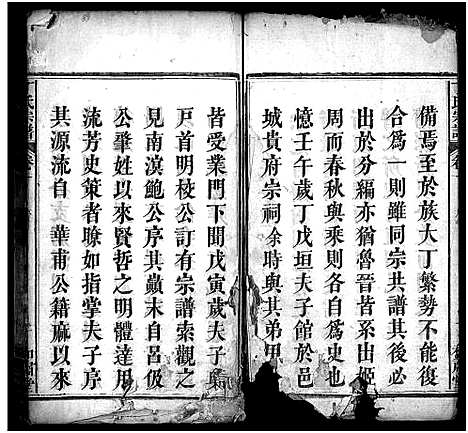 備焉至於族大丁繁勢不能復
合為一則雖同宗共譜其後必
出於分編亦猶魯晉皆系出姬
周而春秋與乘則各自為史也
憶壬午歲丁戊垣夫子館於邑
城貴府宗祠余時與其弟用
皆受業門下聞戊寅歲夫子與
戶首明枝公訂有宗譜索觀之
見南溟鮑公序其巔末自呂伋
公肇姓以來賢哲之明體達用
流芳史策者瞭如指掌夫子序
其源流自 華甫公籍麻以來
氏宗譜